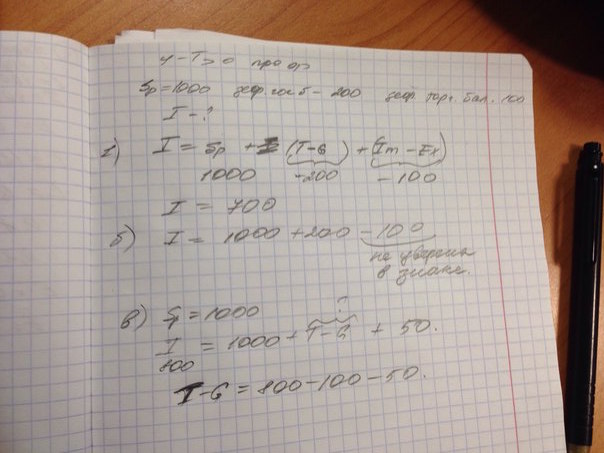 Sp = 1000 деф. гос б - 200 деф. торг. бал. 100
I - ?
1) I = Sp + (T-G) + (Im - Ex)
1000 -200 -100
I = 700
б) I = 1000 + 200 - 100
не уверена
в знаке.
?
в) Sp = 1000
I = 1000 + T-G + 50.
800
T-G = 800-100-50.